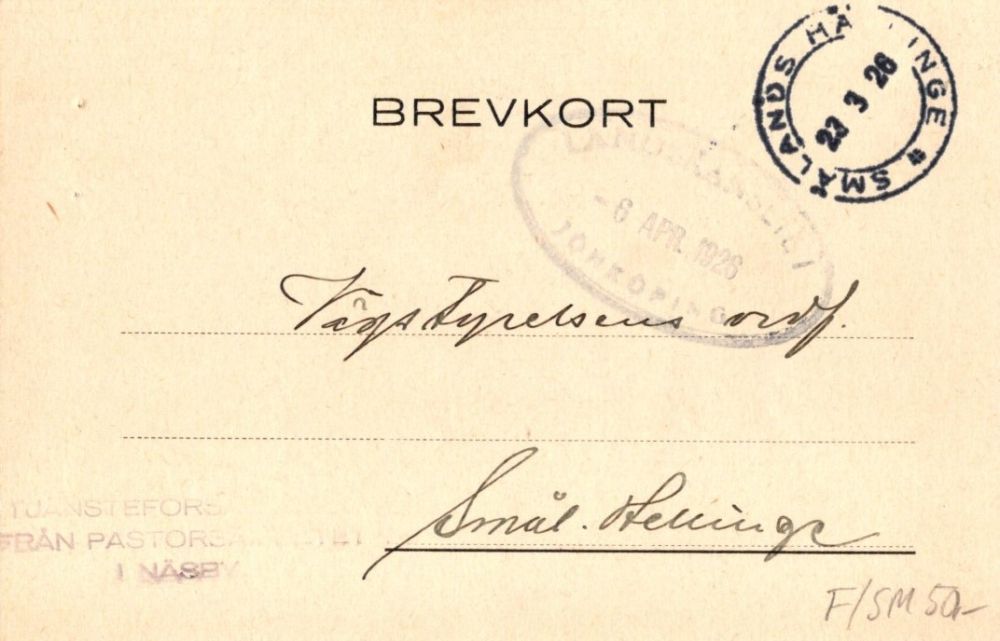 BREVKORT
SMÅLANDS HÄ INGE *
23 3 26
LANDSKANSLIET I
- 6 APR. 1926
JÖNKÖPING
Vägstyrelsens ordf.
Smål. Hellinge
TJÄNSTEFORS
FRÅN PASTORS
I NÄSBY
F/SM 50:-